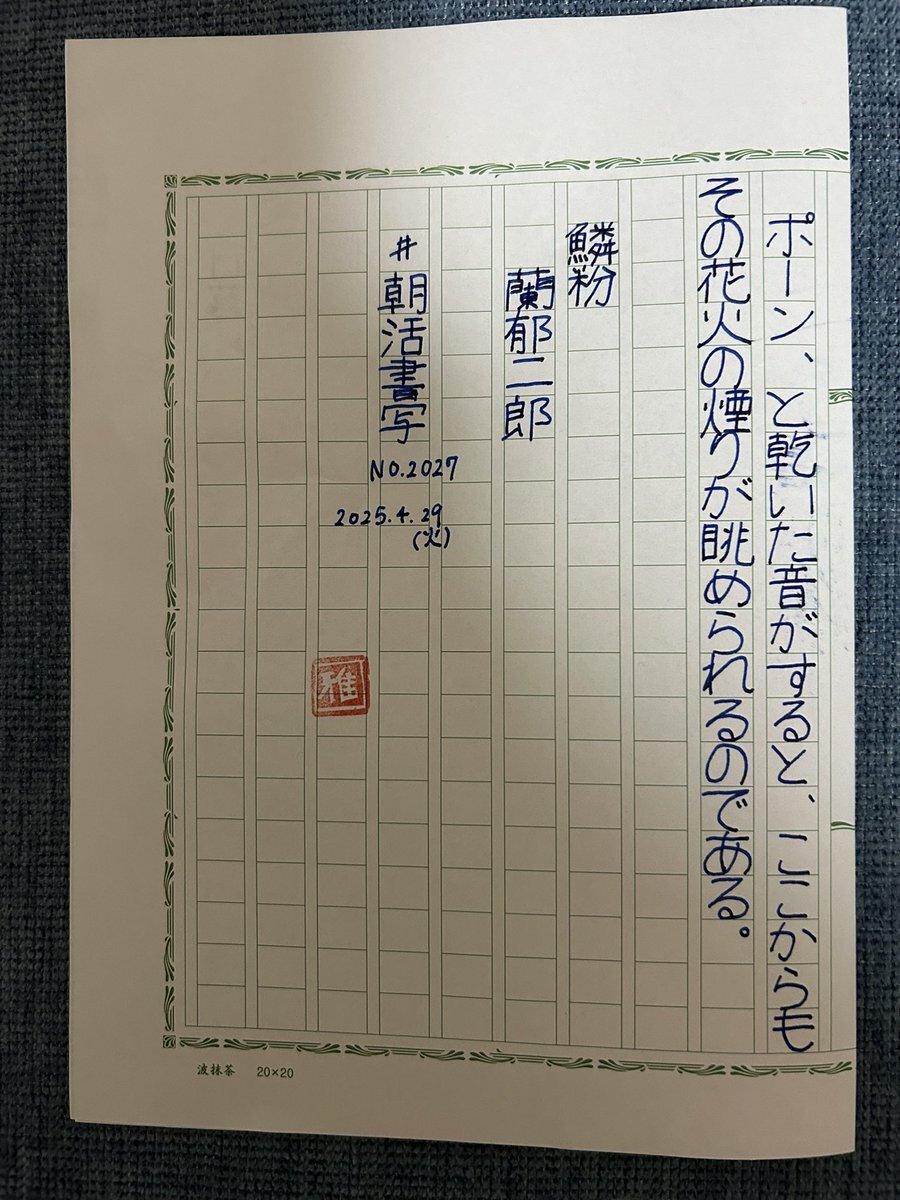 ポーン、と乾いた音がすると、ここからも
その花火の煙りが眺められるのである。
鱗粉
蘭郁二郎
#朝活書写
NO.2027
2025.4.29
(火)
雅
波抹茶 20×20